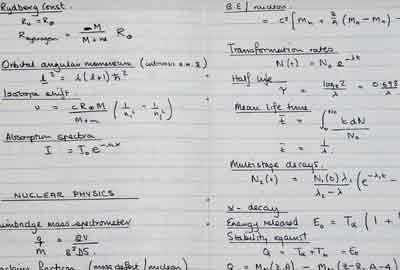 Rydberg Const.
R₀ = R∞
R hydrogen = M / M+m R∞
Orbital angular momentum
l² = l(l+1)ħ²
Isotope shift.
υ = cR∞M / M+m (1/n₁² - 1/n₂²)
Absorption spectra
I = I₀e
NUCLEAR PHYSICS
mass spectrometer
q/m =
fraction (mass defect / nucleon)
B.E / nucleon
= c² [Mn + Z/A (MH - Mn) -
Transformation rates
N(t) = N₀ e^-λt
Half life
τ = loge2 / λ = 0.693 / λ
Mean life time
t̄ = ∫ t dN / N₀
t̄ = 1/λ
Multistage decays.
N₂(t) = N₁(0) λ₁ / λ₂ - λ₁ (e^-λ₁t -
α - decay
Energy released E₀ = Tα (1 +
Stability against
Q = Tα + Tb = E₀
Q = M (Z,A) - M (Z-2, A-4)